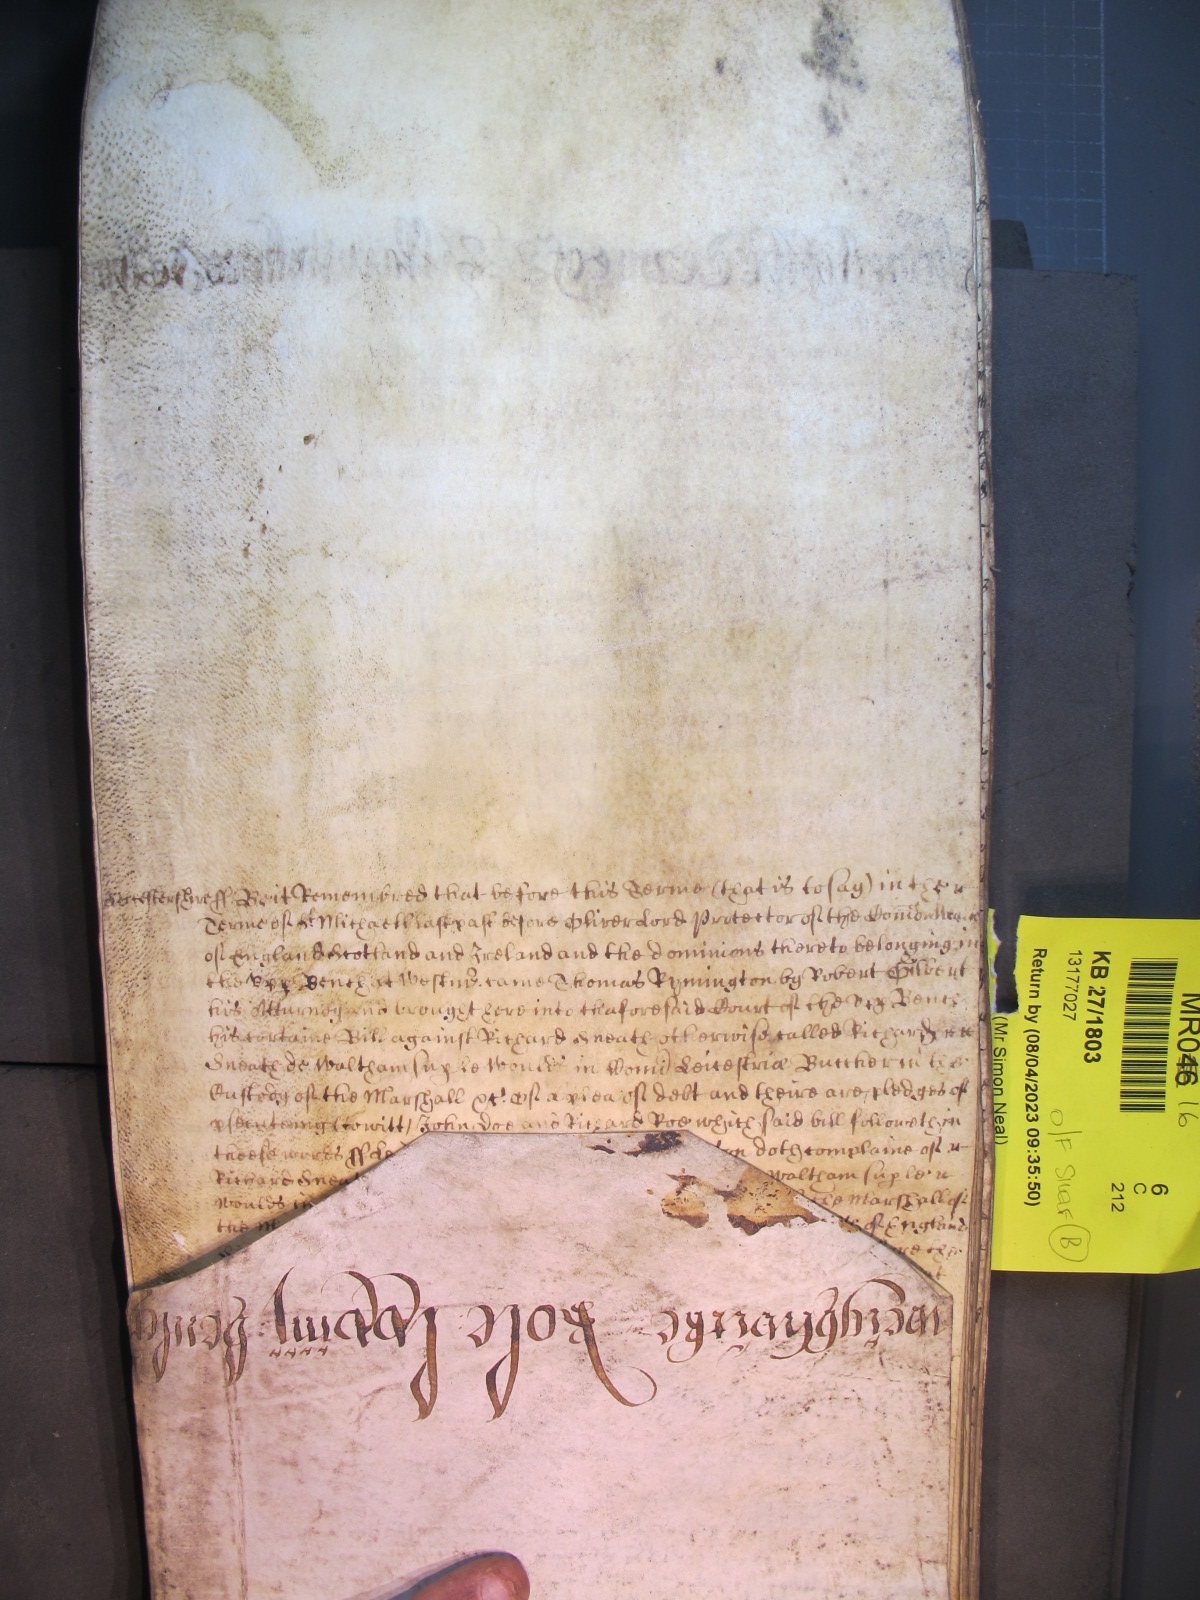 Leicestershire ss Beit Remembred that before this Terme (that is to say) in the
Terme of St Michaell last past before Oliver Lord Protector of the Comonwea
of England Scotland and Ireland and the dominions thereto belonging in
the upp Bench at Westmr came Thomas Rymington by Robert Gilbert
his Atturney and brought here into thaforesaid Court of the upp Bench
his certaine Bill against Richard Sneath otherwise called Richard
Sneath de Waltham sup le Would in Com Leicestrie Butcher in the
Custody of the Marshall &c of a plea of debt and theire are pledges of
psecuteing (to witt) John Doe and Richard Roe which said bill followeth in
theese words ss doth complaine of
Richard Snea Waltham sup le
Woulds in the Marshall of
the M of England
the
Roll
Bench
KB 27/1803
13177027
Return by (08/04/2023 09:35:50)
(Mr Simon Neal)
6
C
212
O/F Shelf (B)
16